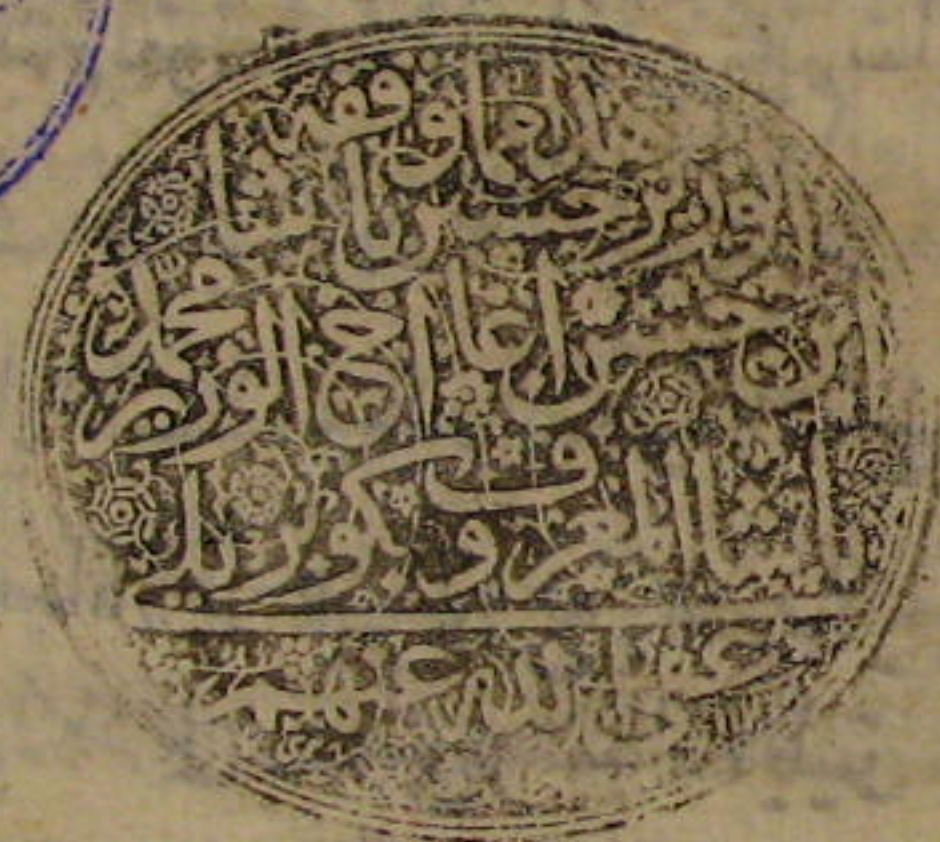 هذا مما وقفه
الوزير حسين باشا
ابن حسن اغا اخ الوزير محمد
باشا المعروف بكوبريلي
عفا الله عنهم